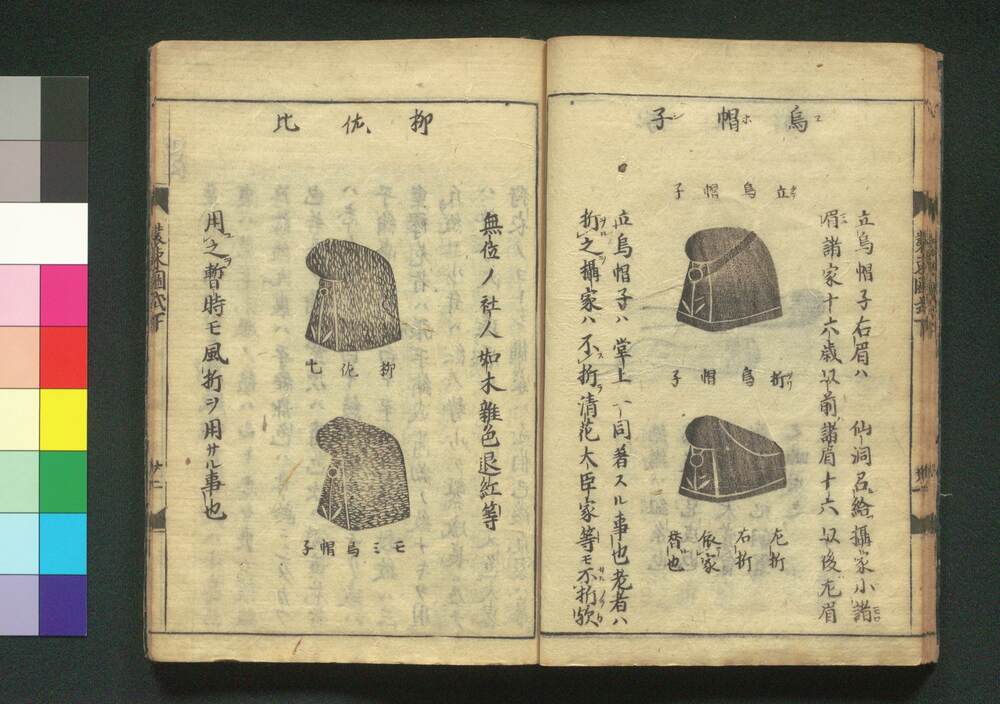 烏帽子
立烏帽子
折烏帽子
左折
右折
依家
替也
立烏帽子右眉ハ 仙洞召給攝家小諸
眉諸家十六歳以前諸眉十六以後左眉
立烏帽子ハ堂上一同著スル事也老者ハ
折之攝家ハ不折清花大臣家等モ不折歟
柳佐比
柳佐比
モミ烏帽子
無位ノ社人如木雜色退紅等
用之暫時モ風折ヲ用サル事也
装束圖式下